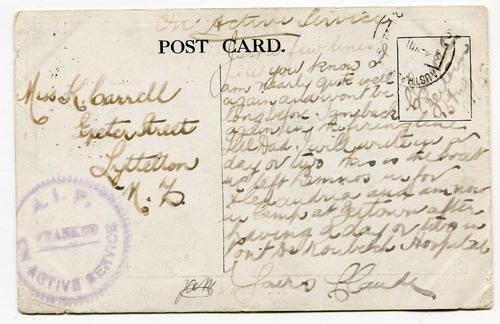 On Active Service
POST CARD.
Miss K Carrell
Exeter Street
Lyttelton
N. Z.
A. I. F.
FRANKED
ON ACTIVE SERVICE
Just a few lines to
let you know I
am nearly quite well
again and wont be
long before I am back
again in the firing line
Tell Dad I will write in a
day or two this is the boat
we left Lemnos in for
Alexandria and am now
in camp at Zeitown after
having a day or two in
Port De Koubeh Hospital
Yours Claude